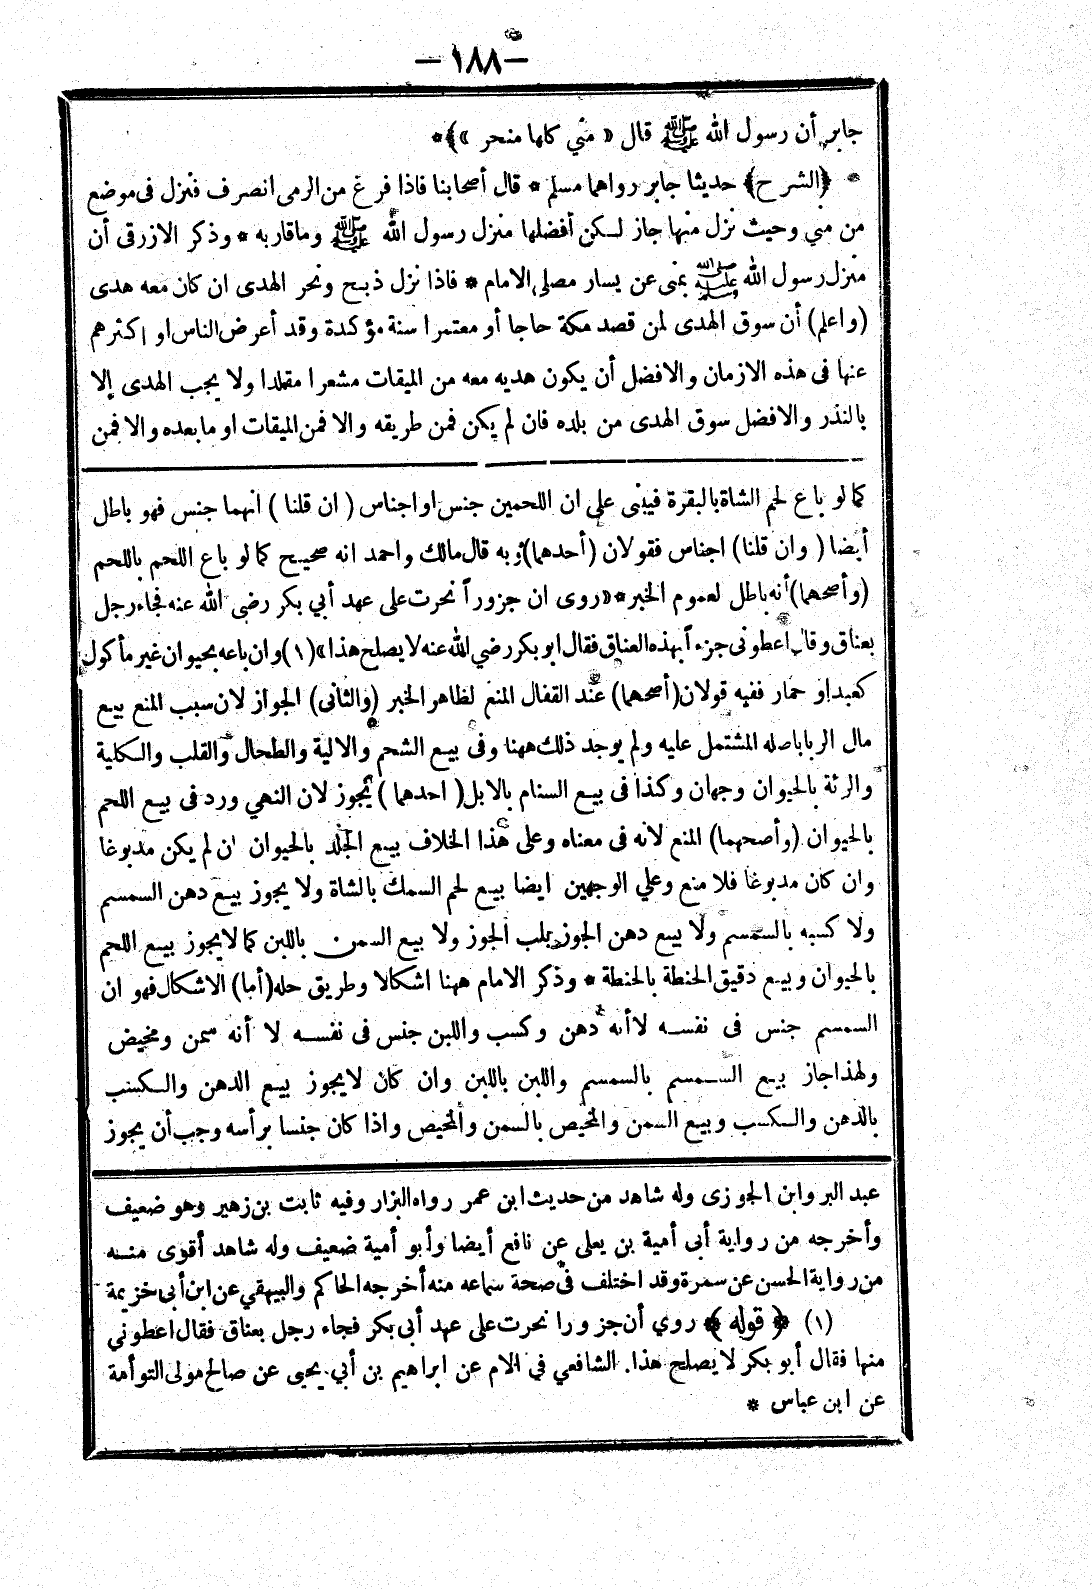 -١٨٨-
جابر أن رسول الله ﷺ قال « منى كلها منحر »﴾*
* ﴿الشرح﴾ حديثا جابر رواهما مسلم * قال أصحابنا فاذا فرغ من الرمى انصرف فنزل فى موضع
من منى وحيث نزل منها جاز لكن أفضلها منزل رسول الله ﷺ وماقاربه * وذكر الازرقى أن
منزل رسول الله ﷺ بمنى عن يسار مصلى الامام * فاذا نزل ذبح ونحر الهدى ان كان معه هدى
(واعلم) أن سوق الهدى لمن قصد مكة حاجا أو معتمرا سنة مؤكدة وقد أعرض الناس او اكثرهم
عنها فى هذه الازمان والافضل أن يكون هديه معه من الميقات مشعرا مقلدا ولا يجب الهدى إلا
بالنذر والافضل سوق الهدى من بلده فان لم يكن فمن طريقه والا فمن الميقات او مابعده والا فمن
كما لو باع لحم الشاة بالبقرة فيبنى على ان اللحمين جنس او اجناس ( ان قلنا ) انهما جنس فهو باطل
أيضا ( وان قلنا) اجناس فقولان (أحدهما) وبه قال مالك واحمد انه صحيح كما لو باع اللحم باللحم
(وأصحهما) أنه باطل لعموم الخبر *«روى ان جزورا نحرت على عهد أبي بكر رضى الله عنه فجاء رجل
بعناق وقال اعطونى جزءا بهذه العناق فقال ابو بكر رضي الله عنه لا يصلح هذا»(١) وان باعه بحيوان غير مأكول
كعبد او حمار ففيه قولان (أصحهما) عند القفال المنع لظاهر الخبر (والثانى) الجواز لان سبب المنع بيع
مال الربا باصله المشتمل عليه ولم يوجد ذلك ههنا وفى بيع الشحم والالية والطحال والقلب والكلية
والرئة بالحيوان وجهان وكذا فى بيع السنام بالابل ( احدهما ) يجوز لان النهي ورد فى بيع اللحم
بالحيوان (وأصحهما) المنع لانه فى معناه وعلى هذا الخلاف بيع الجلد بالحيوان ان لم يكن مدبوغا
وان كان مدبوغا فلا منع وعلي الوجهين ايضا بيع لحم السمك بالشاة ولا يجوز بيع دهن السمسم
ولا كسبه بالسمسم ولا بيع دهن الجوز بلب الجوز ولا بيع السمن باللبن كما لا يجوز بيع اللحم
بالحيوان وبيع دقيق الحنطة بالحنطة * وذكر الامام ههنا اشكالا وطريق حله (أما) الاشكال فهو ان
السمسم جنس فى نفسه لا أنه دهن وكسب واللبن جنس فى نفسه لا أنه سمن ومخيض
ولهذا جاز بيع السمسم بالسمسم واللبن باللبن وان كان لا يجوز بيع الدهن والكسب
بالدهن والكسب وبيع السمن والمخيض بالسمن والمخيض واذا كان جنسا برأسه وجب أن يجوز
عبد البر وابن الجوزى وله شاهد من حديث ابن عمر رواه البزار وفيه ثابت بن زهير وهو ضعيف
وأخرجه من رواية أبى أمية بن يعلى عن نافع أيضا وأبو أمية ضعيف وله شاهد أقوى منه
من رواية الحسن عن سمرة وقد اختلف فى صحة سماعه منه أخرجه الحاكم والبيهقي عن ابن أبى خزيمة
(١) ﴿ قوله ﴾ روي أن جزورا نحرت على عهد أبى بكر فجاء رجل بعناق فقال اعطوني
منها فقال أبو بكر لا يصلح هذا. الشافعي في الام عن ابراهيم بن أبي يحيى عن صالح مولى التوأمة
عن ابن عباس *